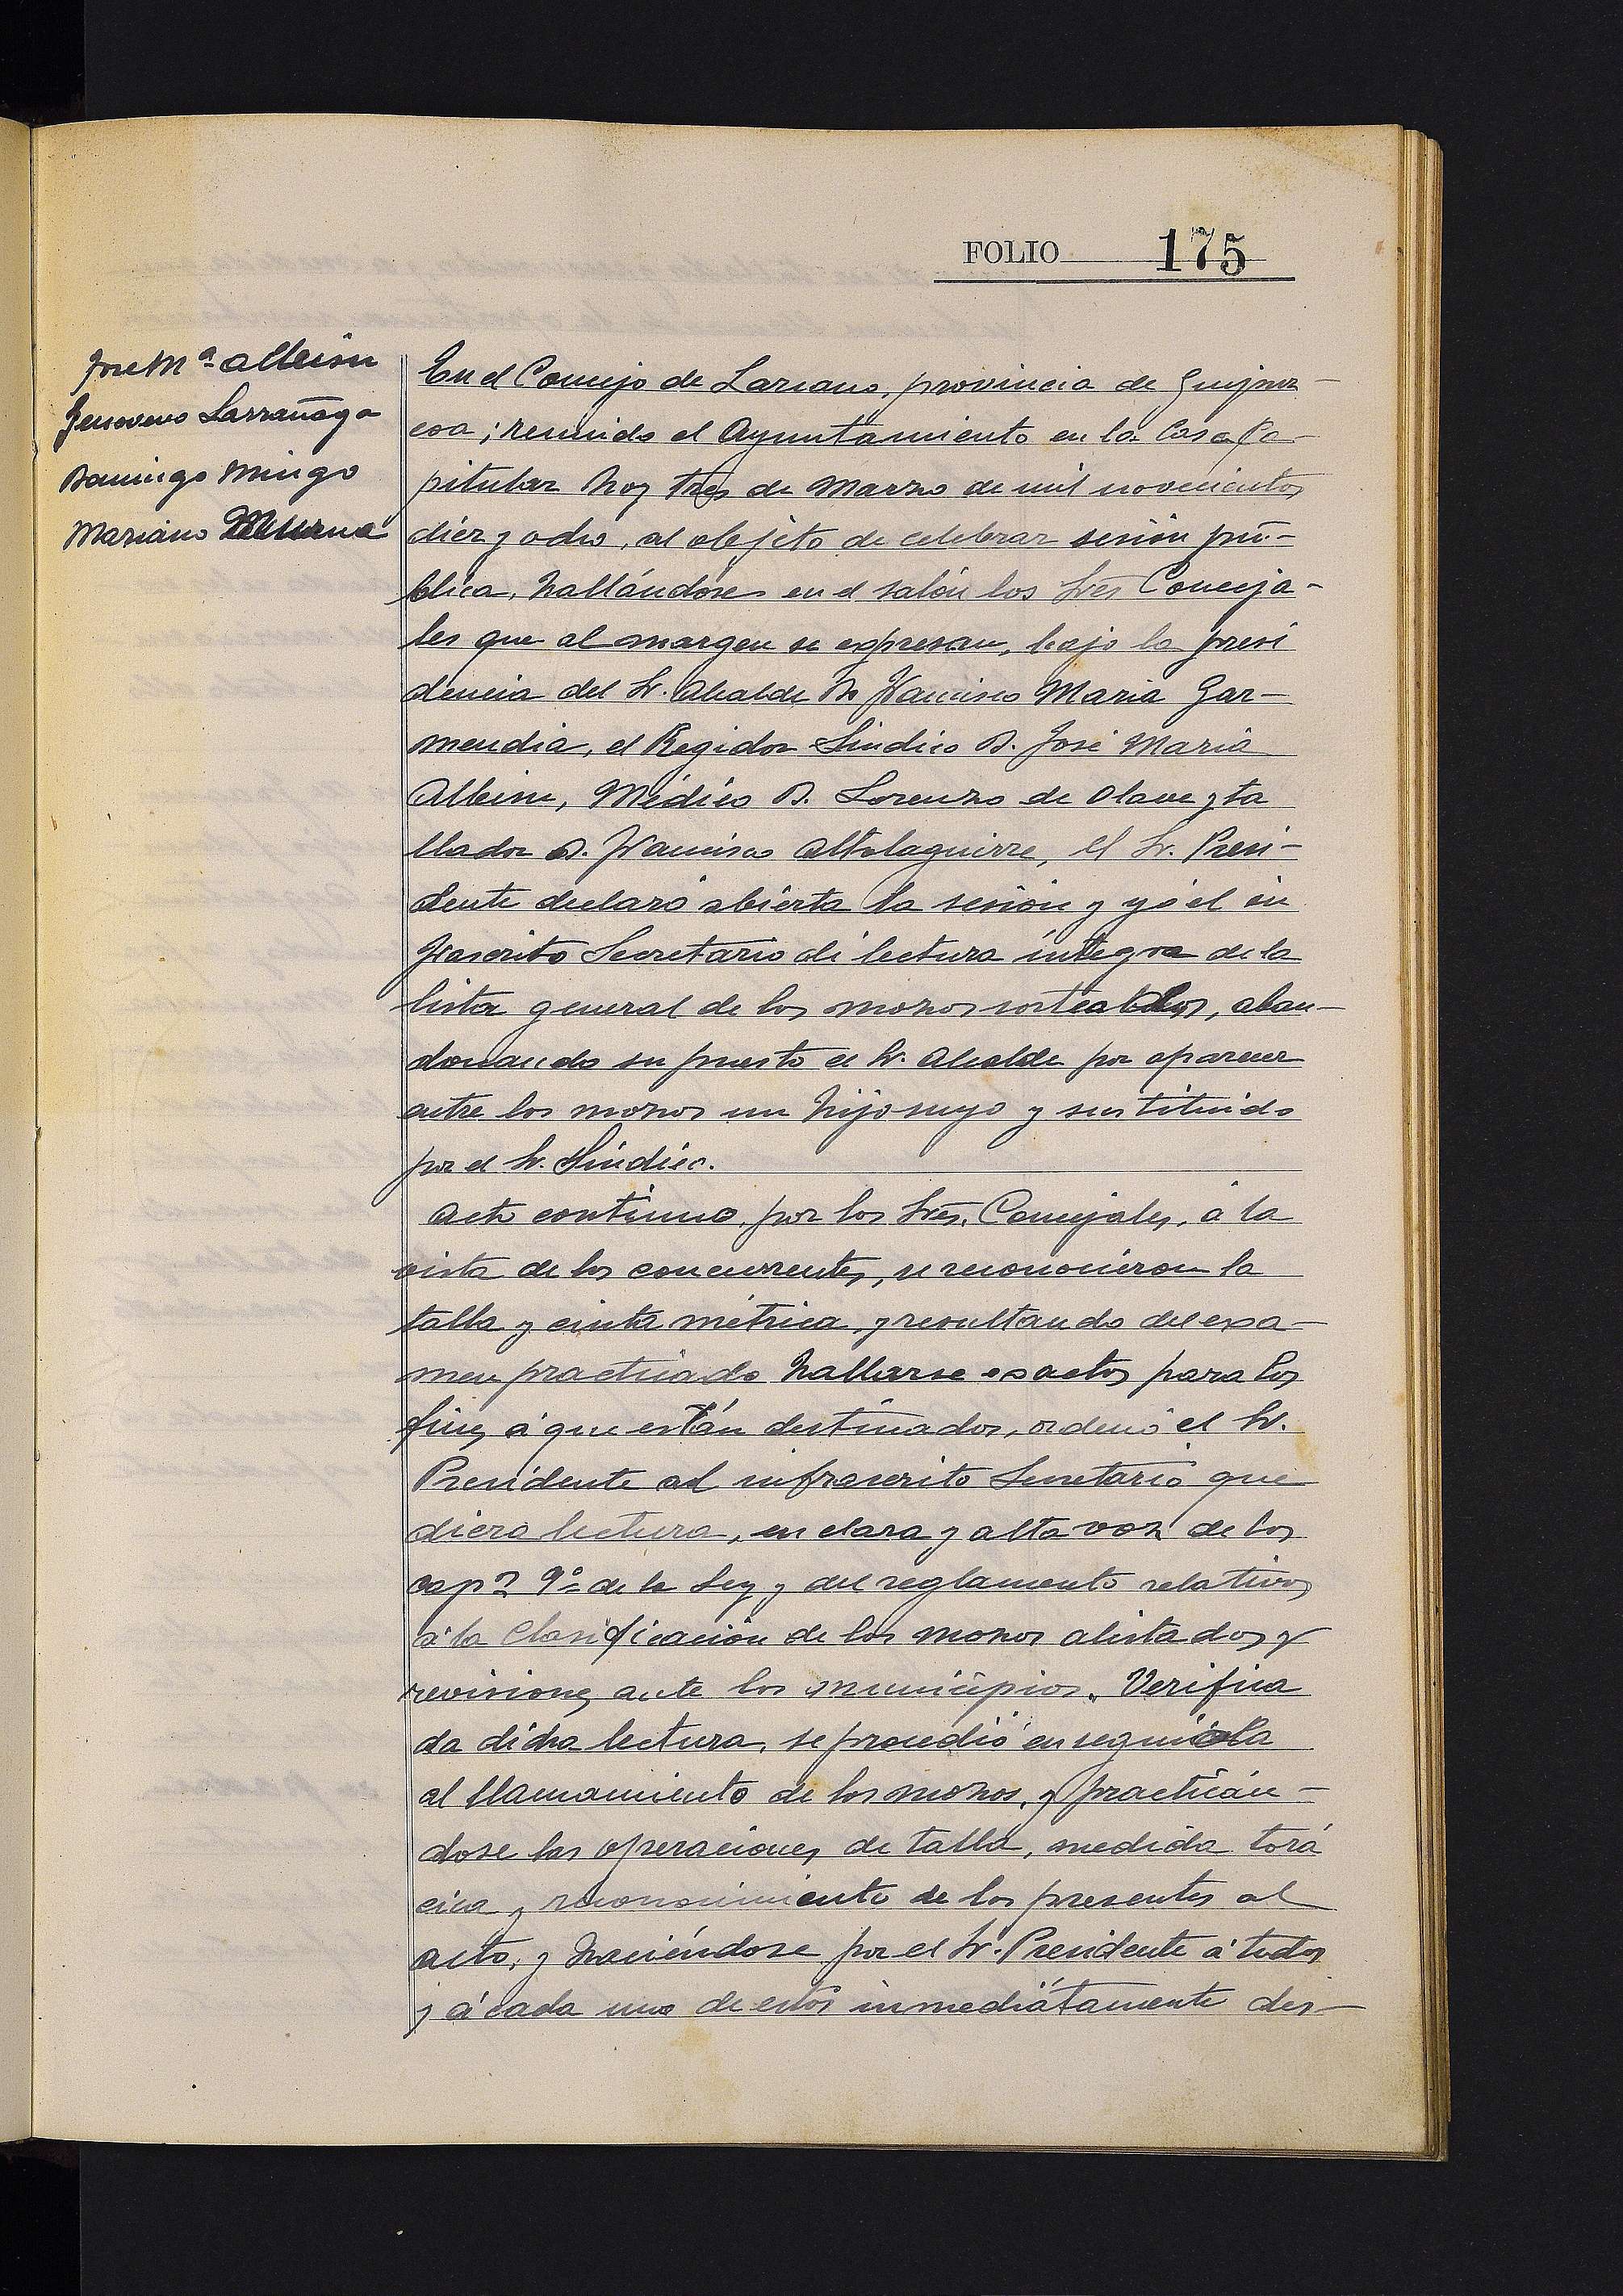 FOLIO 175
José Mª Albisu
Genoveno Larrañaga
Domingo Mingo
Mariano
En el Concejo de Lazcano, provincia de Guipuz-
coa; reunido el Ayuntamiento en la Casa Ca-
pitular hoy tres de Marzo de mil novecientos
diez y ocho, al objeto de celebrar sesión pú-
blica, hallándose en el salón los Sres Conceja-
les que al margen se expresan, bajo la presi
dencia del Sr. Alcalde Dn Francisco Maria Gar-
mendia, el Regidor Síndico D. José Maria
Albisu, Médico D. Lorenzo de Olave y ta
llador D. Francisco Altolaguirre, el Sr. Presi-
dente declaró abierta la sesión y yó el in
frascrito Secretario dí lectura íntegra de la
lista general de los mozos sorteables, aban-
donando su puesto el Sr. Alcalde por aparecer
entre los mozos un hijo suyo y sustituido
por el Sr. Síndico.
Acto continuo, por los Sres. Concejales, á la
vista de los concurrentes, se reconocieron la
talla y cinta métrica, y resultando del exa-
men practicado hallarse exactos para los
fines á que están destinados, ordenó el Sr.
Presidente al infrascrito Secretario que
diera lectura, en clara y alta voz de los
cap.s 9º de la Ley y del reglamento relativos
á la Clasificación de los mozos alistados y
revisiones ante los municipios. Verifica
da dicha lectura, se procedió enseguida
al llamamiento de los mozos, y practicán-
dose las operaciones de talla, medida torá
cica y reconocimiento de los presentes al
acto, y haciéndose por el Sr. Presidente á todos
y á cada uno de estos inmediátamente des-